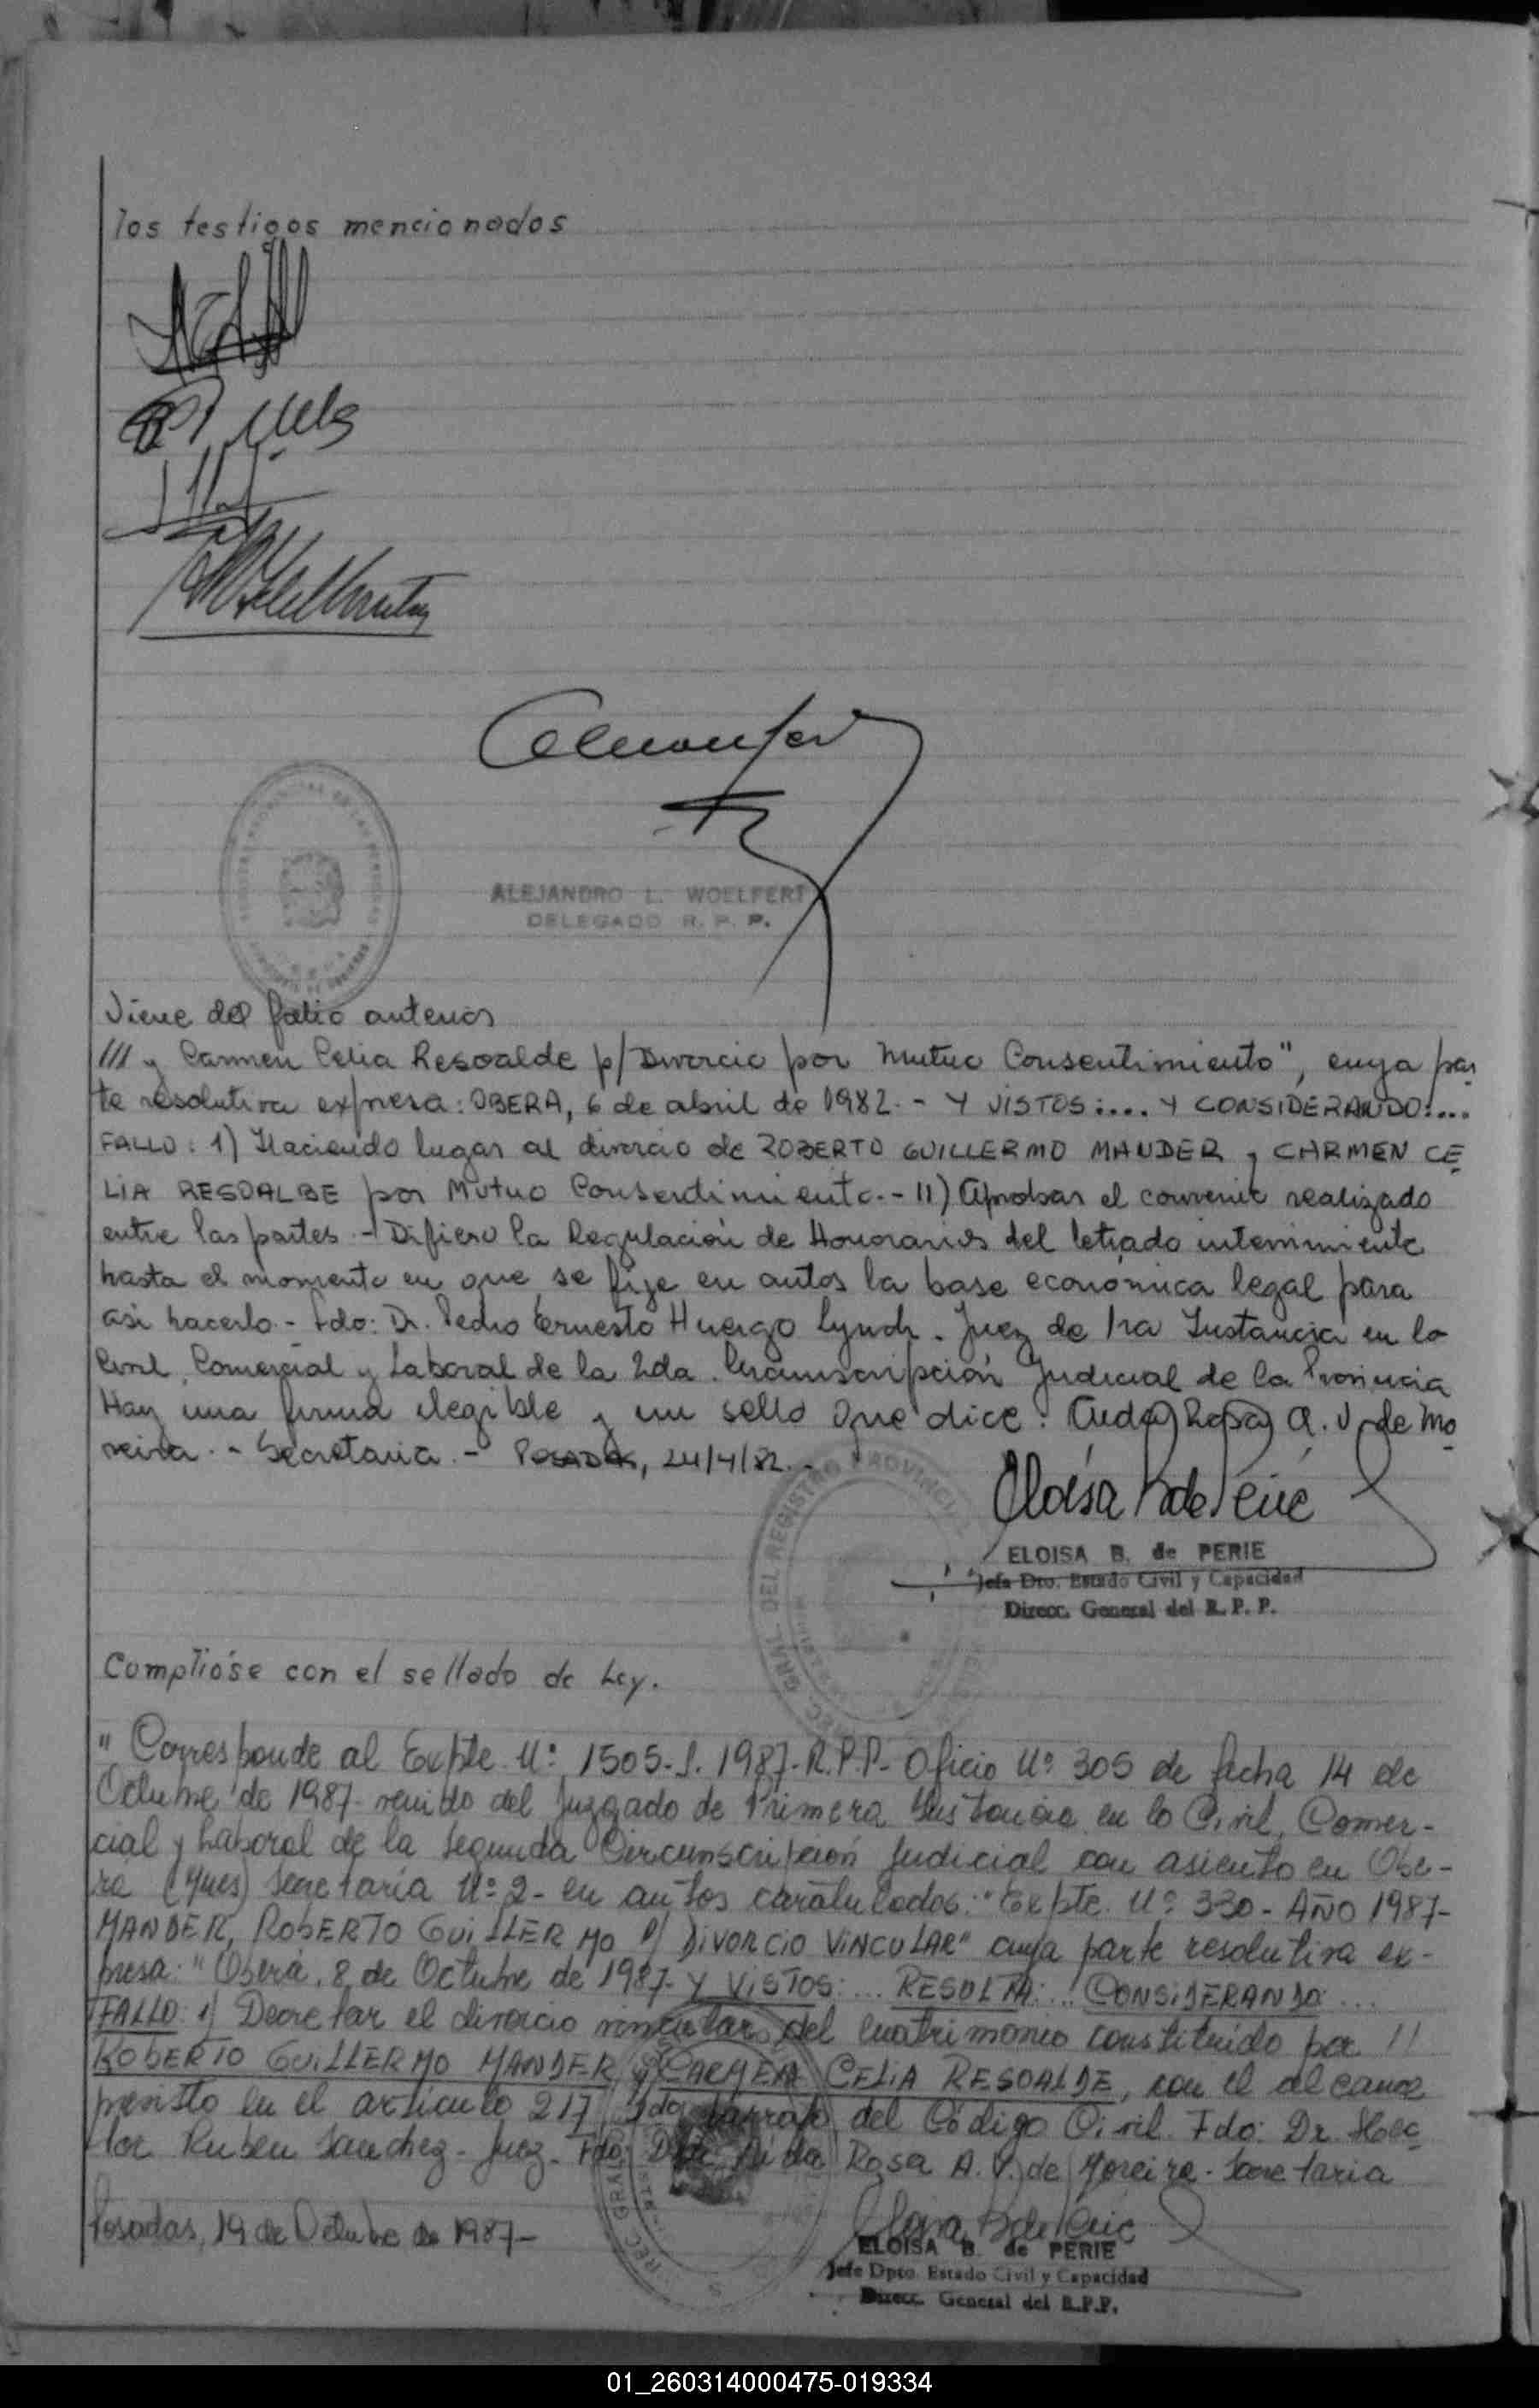 los testigos mencionados
ALEJANDRO L. WOELFERT
DELEGADO R. P. P.
Viene del folio anterior
/// y Carmen Celia Resoalde p/ Divorcio por Mutuo Consentimiento", cuya par
te resolutiva expresa: OBERA, 6 de abril de 1982.- Y VISTOS:... Y CONSIDERANDO:...
FALLO: 1) Haciendo lugar al divorcio de ROBERTO GUILLERMO MANDER y CARMEN CE
LIA RESOALDE por Mutuo Consentimiento.- 11) Aprobar el convenio realizado
entre las partes.- Difiero la Regulación de Honorarios del letrado interviniente
hasta el momento en que se fije en autos la base económica legal para
asi hacerlo.- Fdo: Dr. Pedro Ernesto Huergo Lynch. Juez de 1ra Instancia en lo
Civil, Comercial y Laboral de la 2da. Circunscripción Judicial de la Provincia
Hay una firma ilegible y un sello que dice: Aida Rosa A. V. de Mo
reira.- Secretaria.- POSADAS, 24/4/82.-
ELOISA B. de PERIE
Jefe Dto. Estado Civil y Capacidad
Direcc. General del R. P. P.
Cumplióse con el sellado de Ley.
" Corresponde al Expte. Nº 1505-J. 1987-R.P.P- Oficio Nº 305 de fecha 14 de
Octubre de 1987- venido del Juzgado de Primera Instancia en lo Civil, Comer-
cial y Laboral de la Segunda Circunscripción Judicial con asiento en Obe-
ra (Mnes) Secretaría Nº 2- en autos caratulados: "Expte. Nº 330- AÑO 1987-
MANDER, ROBERTO GUILLERMO P/ DIVORCIO VINCULAR" cuya parte resolutiva ex-
presa: "Oberá, 8 de Octubre de 1987- Y VISTOS: ... RESULTA: ... CONSIDERANDO: ...
FALLO: 1) Decretar el divorcio vincular del matrimonio constituído por //
ROBERTO GUILLERMO MANDER y CARMEN CELIA RESOALDE, con el alcance
previsto en el artículo 217 2do párrafo del Código Civil. Fdo: Dr. Hec
tor Ruben Sanchez- Juez- Fdo: Dra. Aida Rosa A. V. de Moreira- Secretaria
Posadas, 19 de Octubre de 1987-
ELOISA B. de PERIE
Jefe Dpto. Estado Civil y Capacidad
Direcc. General del R.P.P.
01_260314000475-019334